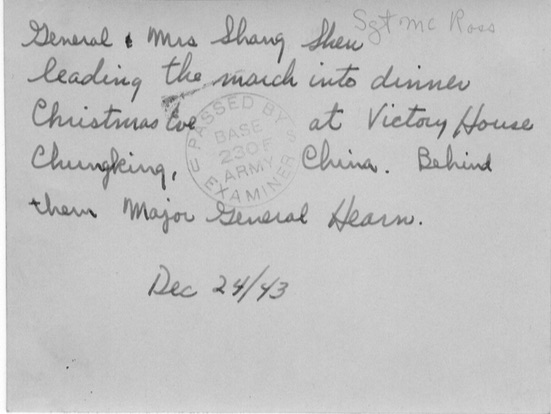 Sgt Mc Ross
General & Mrs Shang Shen
leading the march into dinner
Christmas Eve at Victory House
Chungking, China. Behind
them Major General Hearn.
Dec 24/43
PASSED BY
BASE
230F
ARMY
EXAMINER